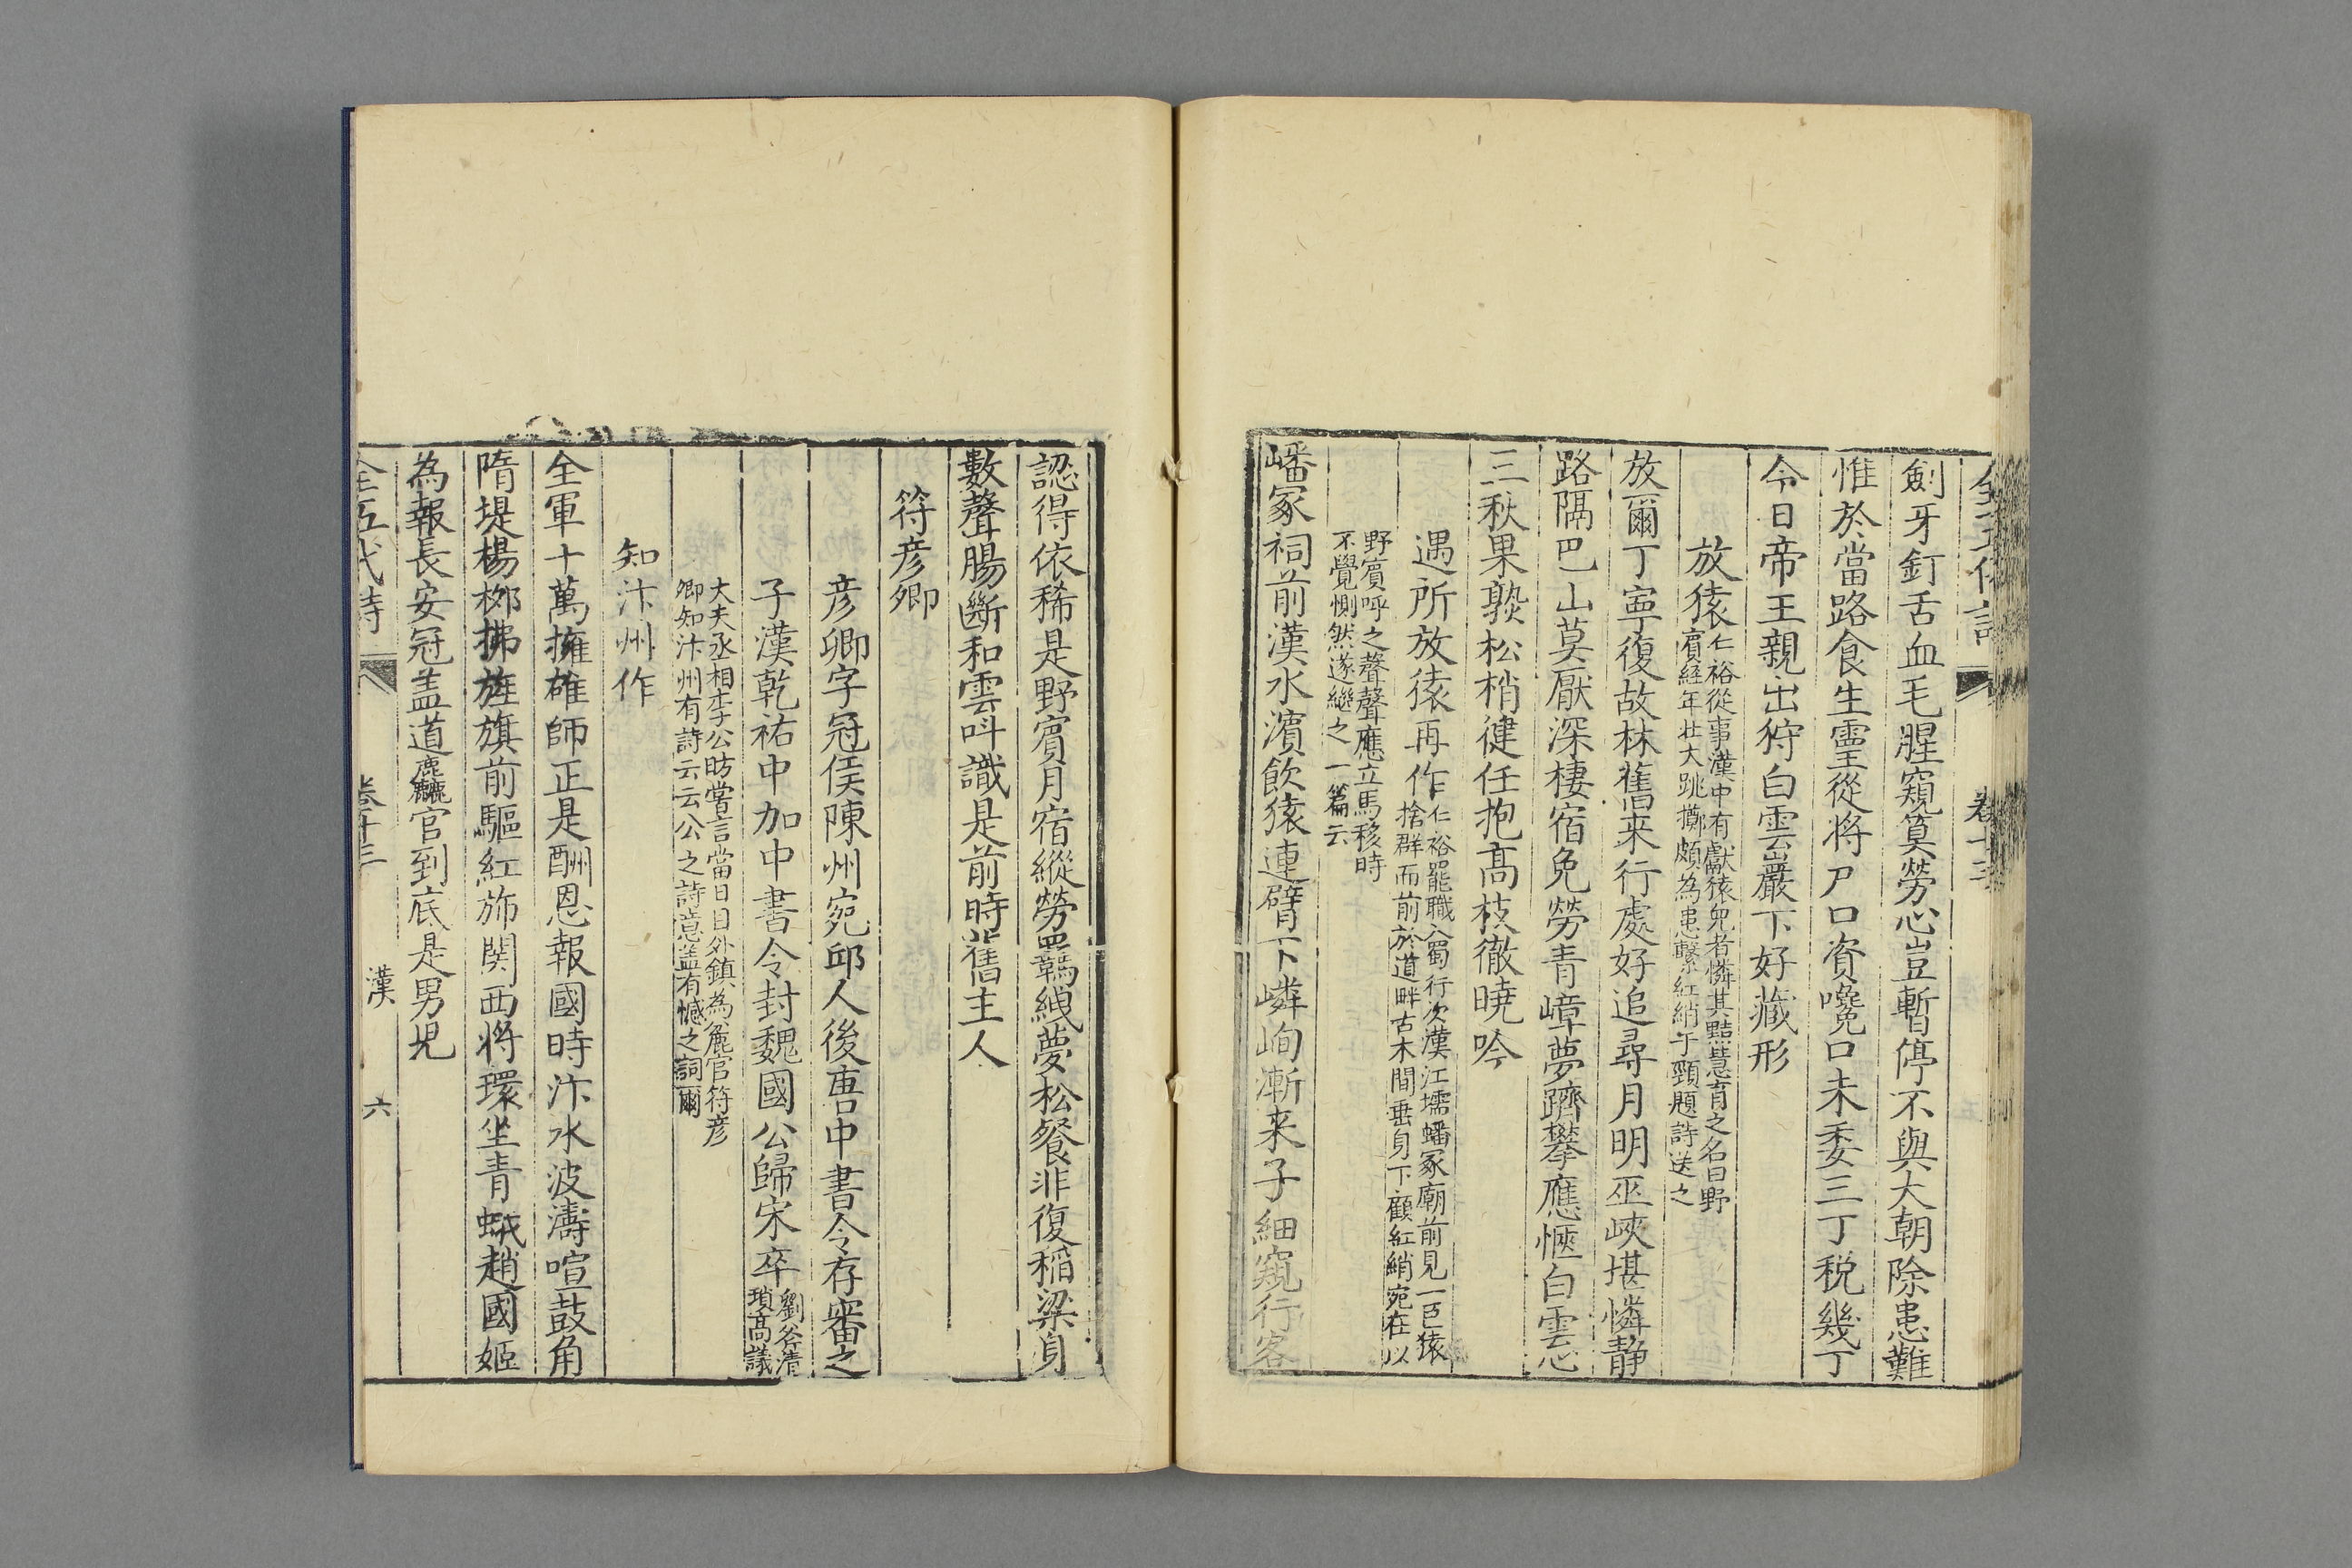 全五代詩
卷十三
劍牙釘舌血毛腥窺筭勞心豈暫停不與大朝除患難
惟於當路食生靈從将戸口資嚵口未委三丁税幾丁
今日帝王親出狩白雲巖下好藏形
放猿仁裕從事漢中有獻猿兒者憐其黠慧育之名曰野
賔經年壮大跳擲頗為患繫紅綃于頸題詩送之
放爾丁寧復故林舊来行處好追尋月明巫峽堪憐静
路隔巴山莫厭深棲宿免勞青嶂夢躋攀應愜白雲心
三秋果熟松梢健任抱高枝徹曉吟
遇所放猿再作仁裕罷職入蜀行次漢江壖嶓冢廟前見一巨猿
捨群而前於道畔古木間垂身下顧紅綃宛在以
野賔呼之聲聲應立馬移時
不覺惻然遂繼之一篇云
嶓冢祠前漢水濱飲猿連臂下嶙峋漸来子細窺行客
認得依稀是野賔月宿縱勞羈絏夢松餐非復稻粱身
數聲腸斷和雲呌識是前時舊主人
符彦卿
彦卿字冠侯陳州宛邱人後唐中書令存審之
子漢乾祐中加中書令封魏國公歸宋卒劉斧清
瑣高議
大夫丞相李公昉嘗言當日目外鎮為麄官符彦
卿知汴州有詩云云公之詩意盖有憾之詞爾
知汴州作
全軍十萬擁雄師正是酬恩報國時汴水波濤喧鼓角
隋堤楊栁拂旌旗前驅紅斾関西将環坐青蛾趙國姬
為報長安冠盖道麤官到底是男兒
全五代詩
卷十三
漢
六